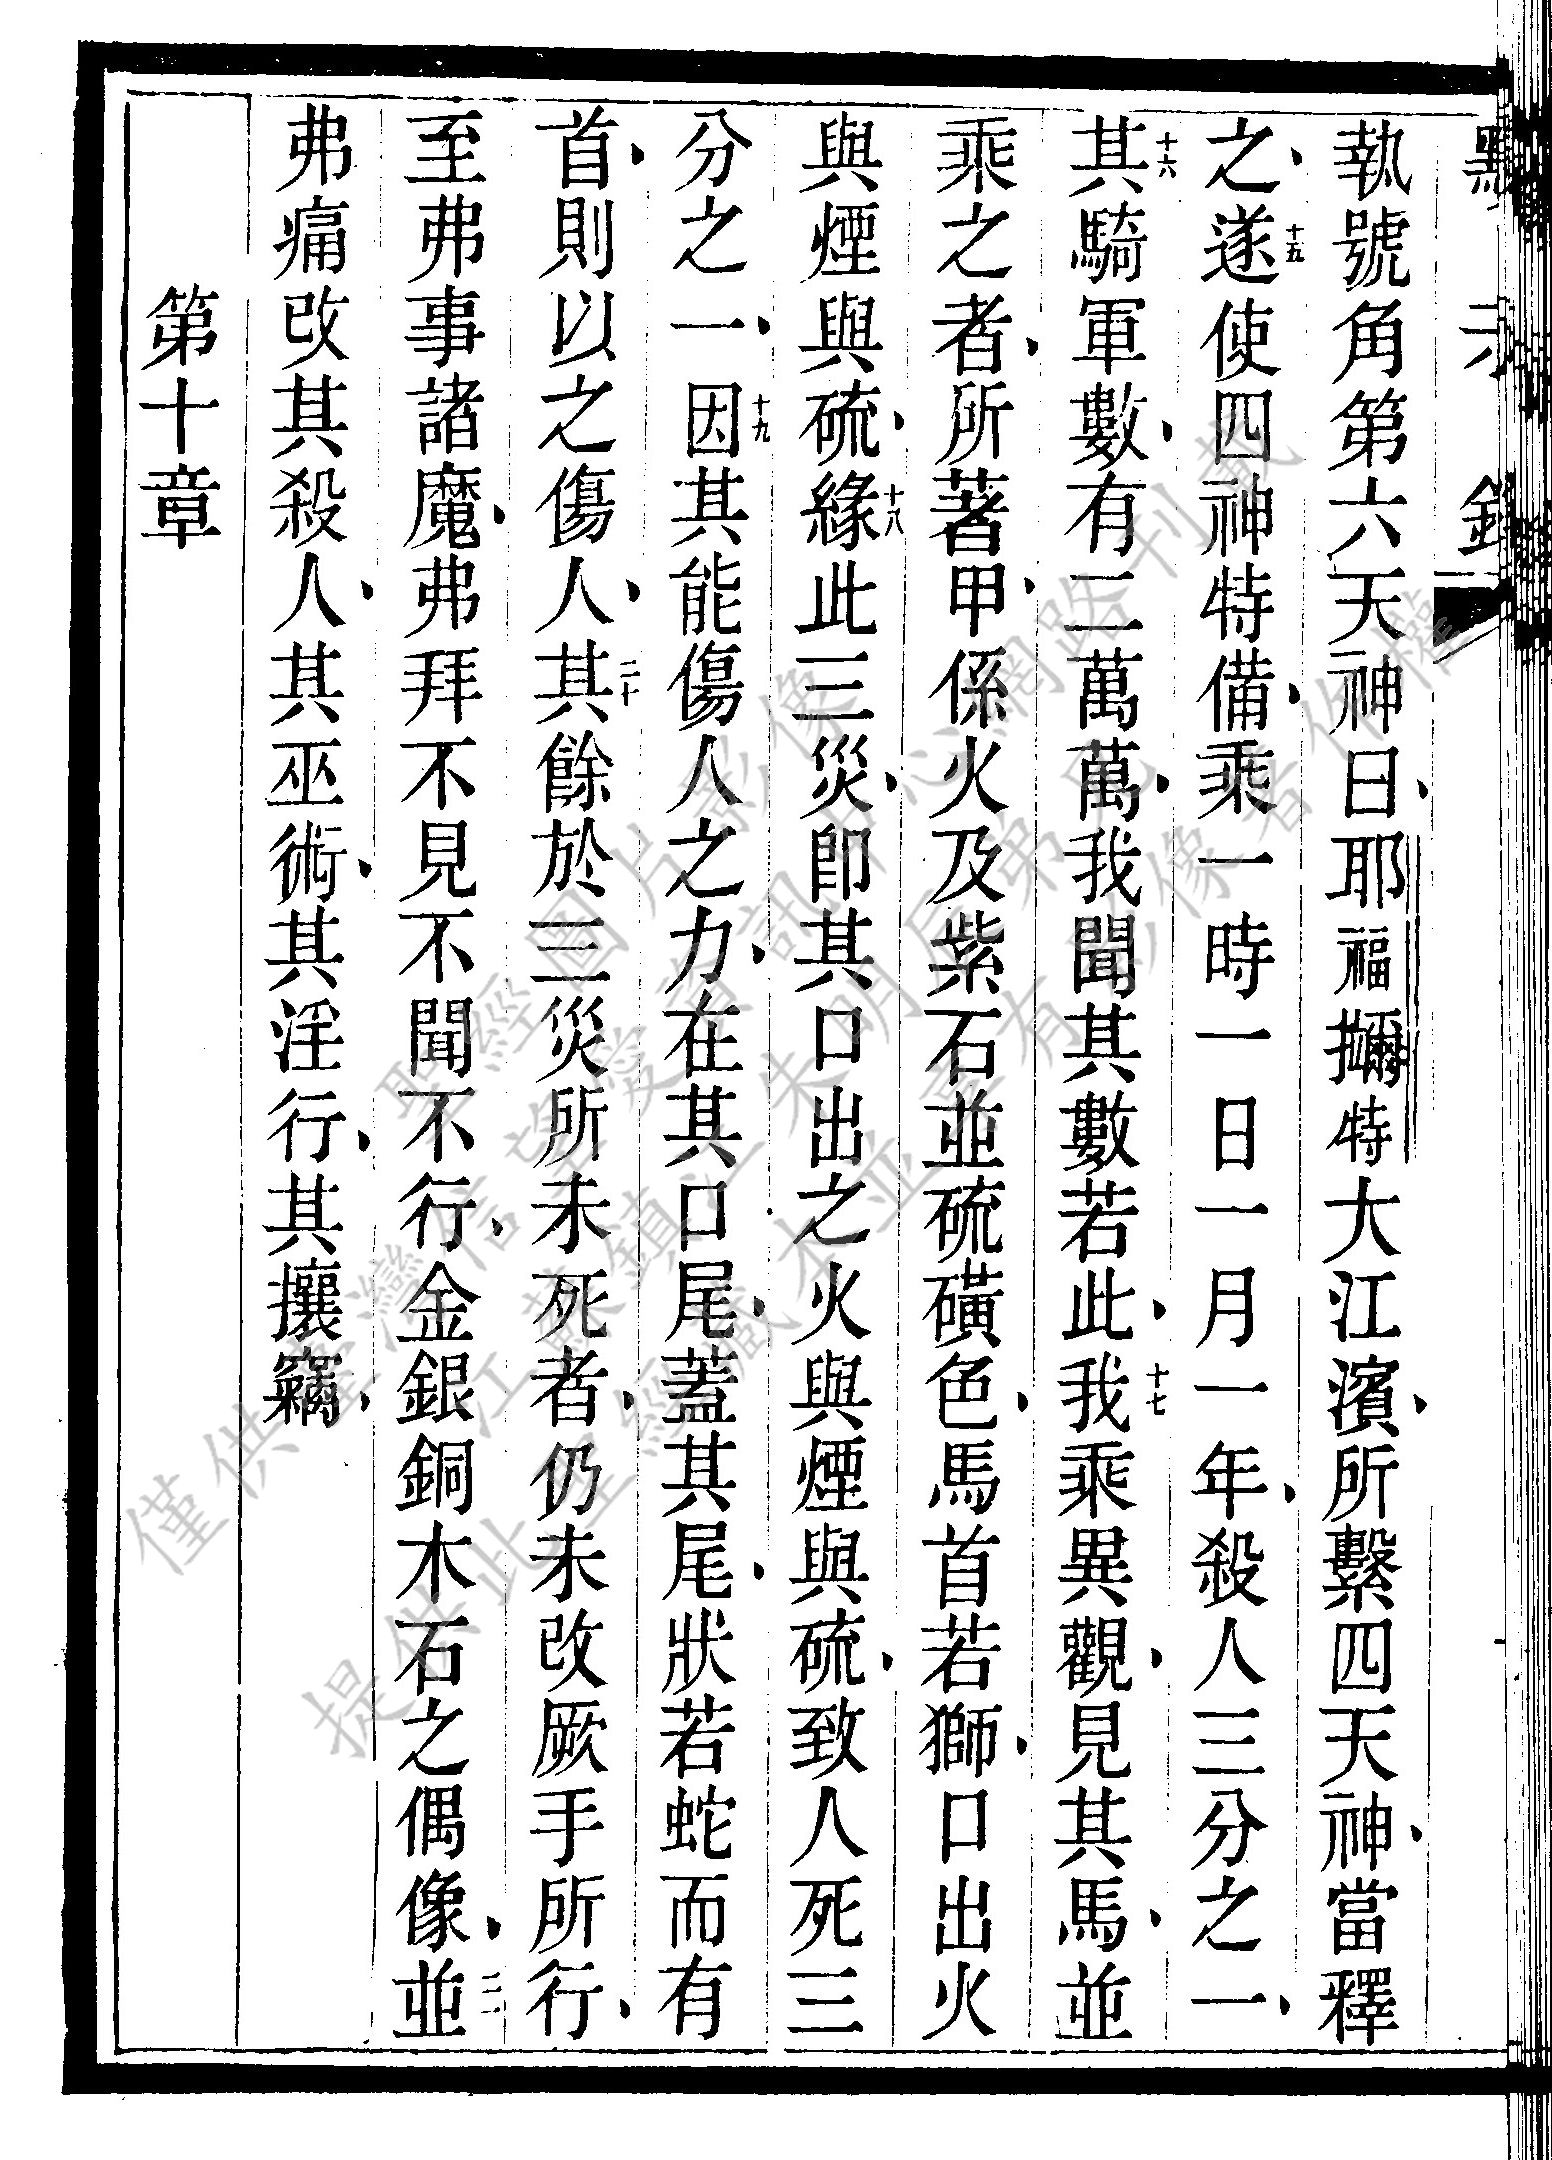 默示錄
執號角第六天神曰、耶福擟特大江濱、所繫四天神、當釋
之、十五遂使四神特備、乘一時一日一月一年、殺人三分之一、
十六其騎軍數、有二萬萬、我聞其數若此、十七我乘異觀、見其馬、並
乘之者、所著甲、係火及紫石並硫磺色、馬首若獅、口出火
與煙與硫、十八緣此三災、即其口出之火與煙與硫、致人死三
分之一、十九因其能傷人之力、在其口尾、蓋其尾、狀若蛇而有
首、則以之傷人、二十其餘於三災所未死者、仍未改厥手所行、
至弗事諸魔、弗拜不見不聞不行、金銀銅木石之偶像、二一並
弗痛改其殺人、其巫術、其淫行、其攘竊、
第十章
僅供臺灣信望愛資訊中心網路刊載
提供此聖經藏本並享有影像著作權